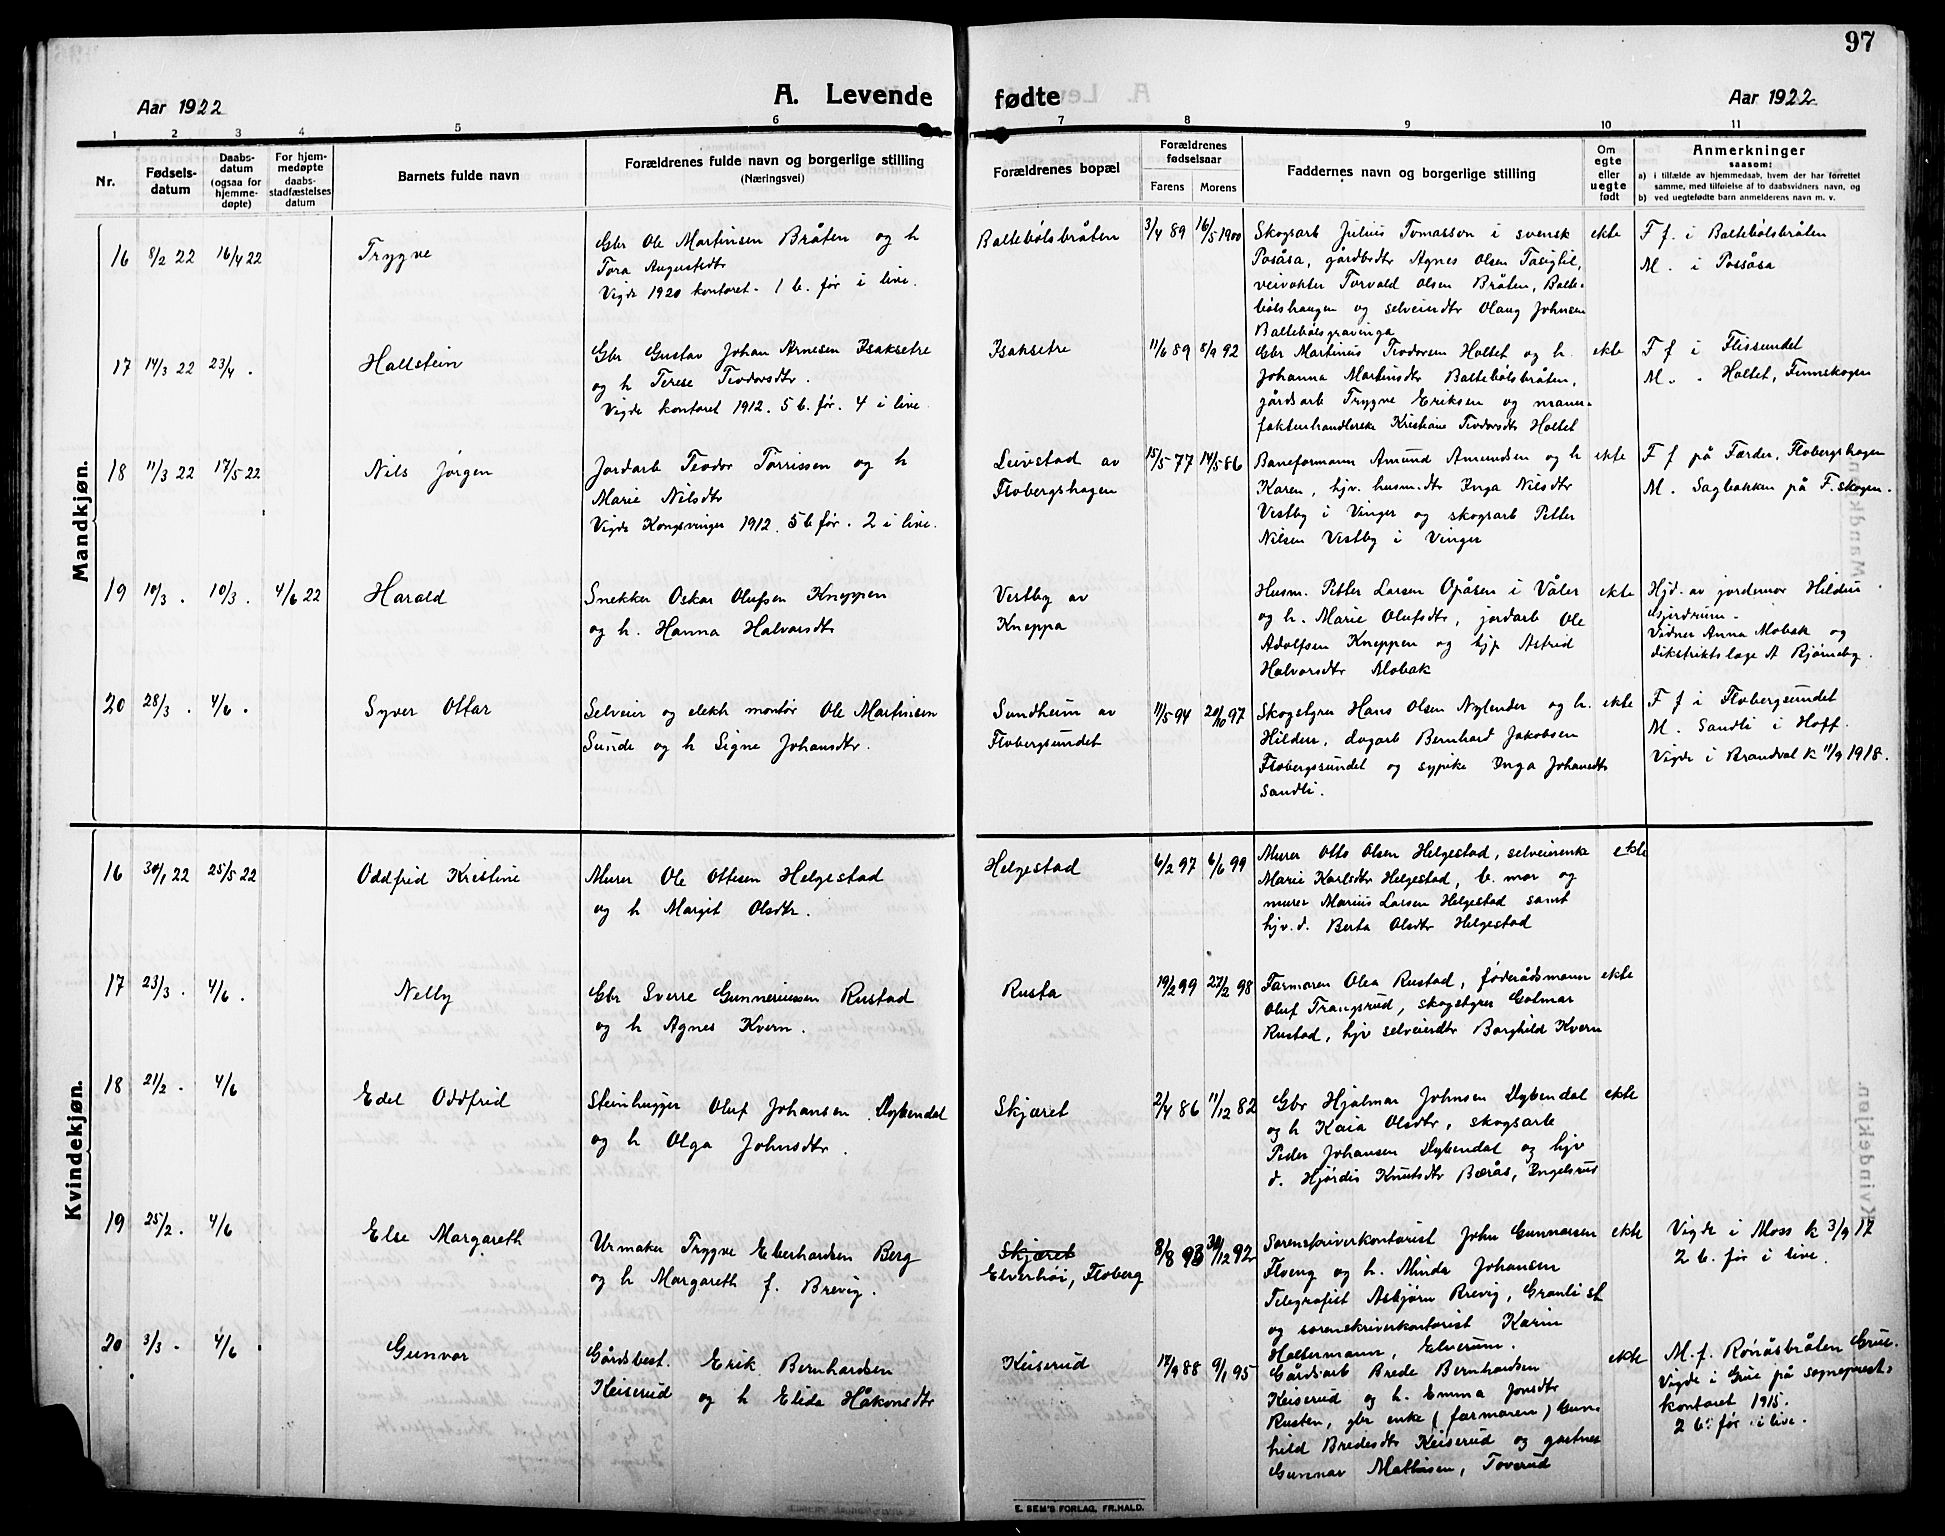 97
Aar 1922
A. Levende
fødte
Aar 1922
1 2 3 4 5 6 7 8 9 10 11
Nr.
Fødsels-
datum
Daabs-
datum
(ogsaa for
hjemme-
døpte)
For hjem-
medøpte
daabs-
stadfæstelses
datum
Barnets fulde navn
Forældrenes fulde navn og borgerlige stilling
(Næringsvei)
Forældrenes bopæl
Forældrenes
fødselsaar
Farens
Morens
Faddernes navn og borgerlige stilling
Om
egte
eller
uegte
født
Anmerkninger
saasom:
a) i tilfælde av hjemmedaab, hvem der har forrettet
samme, med tilføielse af to daabsvidners navn, og
b) ved uegtefødte barn anmelderens navn m. v.
Mandkjøn.
16 8/2 22 16/4 22
Trygve
Gbr Ole Martinsen Bråten og h
Tora Augustsdtr
Vigde 1920 kontoret. 1 b. før i live.
Baltebølsbråten
3/4 89 16/5 1900
Skogsarb Julius Tomasson i svensk
Posåsa, gårdbdtr Agnes Olsen
veivokter Torvald Olsen Bråten, Balte-
bølshaugen og selveierdtr Olaug Johnsen
Baltebølsgravinga
ekte
F f. i Baltebølsbråten
M. i Possåsa
17 14/3 22 23/4 .
Hallstein
Gbr Gustav Johan Arnesen Isaksetre
og h Terese Teodorsdtr.
Vigde kontoret 1912. 5 b. før. 4 i live.
Isaksetre
11/6 89 8/9 92
Gbr Martinius Teodorsen Holtet og h.
Johanna Martinsdtr Baltebølsbråten,
gårdsarb Trygve Eriksen og manu-
fakturhandlerske Kristiane Teodorsdtr Holtet
ekte
F f i Flissundet
M. " Holtet, Finnskogen
18 11/3 22 17/5 22
Nils Jørgen
Jordarb Teodor Torrissen og h
Marie Nilsdtr
Vigde Kongsvinger 1912. 5 b før. 2 i live.
Leivstad av
Flobergshagen
15/5 77 14/5 86
Baneformann Amund Amundsen og h
Karen, hjv. husm.dtr Inga Nilsdtr
Vestby i Vinger og skogsarb Petter
Nilsen Vestby i Vinger
ekte
F f på Færder, Flobergshagen
M. Sagbakken på F.skogen.
19 10/3 . 10/3 . 4/6 22
Harald
Snekker Oskar Olufsen Kneppen
og h. Hanna Halvorsdtr
Vestby av
Kneppa
Husm. Petter Larsen Opåsen i Våler
og h. Marie Olufsdtr, jordarb Ole
Adolfsen Kneppen og hjp Astrid
Halvorsdtr Mobak
ekte
Hjd. av jordemor Hildur
Gjerdrum.
Vidner Anna Mobak og
distriktslæge A Bjørneby.
20 28/3 . 4/6 .
Syver Ottar
Selveier og elektr montør Ole Martinsen
Sunde og h Signe Johansdtr.
Sundheim av
Flobergsundet
11/5 94 20/10 97
Skogstyrer Hans Olsen Nylender og h.
Hildur, dagarb Bernhard Jakobsen
Flobergsundet og sypike Inga Johansdtr
Sandli.
ekte
F f i Flobergsundet
M. Sandli i Hoff.
Vigde i Brandval k 11/9 1918.
Kvindekjøn.
16 30/1 22 25/5 22
Oddfrid Kristine
Murer Ole Ottesen Helgestad
og h Margit Olsdtr.
Helgestad
6/2 97 6/6 99
Murer Otto Olsen Helgestad, selveierenke
Marie Karlsdtr Helgestad, b. mor og
murer Marius Larsen Helgestad samt
hjv.d. Berta Olsdtr Helgestad
ekte
17 23/3 . 4/6 .
Nelly
Gbr Sverre Gunneriussen Rustad
og h Agnes Kvern.
Rusta
19/2 99 27/2 98
Farmoren Olea Rustad, føderådsmann
Oluf Trangsrud, skogstyrer Golmar
Rustad, hjv selveierdtr Borghild Kvern
ekte
18 21/2 . 4/6
Edel Oddfrid
Steinhugger Oluf Johansen Dybendal
og h Olga Johnsdtr.
Skjæret
2/4 86 11/12 82
Gbr Hjalmar Johnsen Dybendal
og h Kaia Olsdtr, skogsarb
Peder Johansen Dybendal og hjv
d. Hjørdis Knutsdtr Bærås, Ingelsrud
ekte
19 25/2 . 4/6
Else Margareth
Urmaker Trygve Eberhardsen Berg
og h Margareth f. Brevig.
Skjæret
Elverhöi, Floberg
8/8 93 30/12 92
Sorenskriverkontorist John Gunnarsen
Floeng og h. Minda Johansen
Telegrafist Asbjørn Brevig, Granli st
og sorenskriverkontorist Karin
Holtermann, Elverum.
ekte
Vigde i Moss k 3/9 17
2 b. før i live.
20 3/3 . 4/6
Gunvor
Gårdsbest. Erik Bernhardsen
Keiserud og h Elida Håkonsdtr
Keiserud
17/9 88 9/1 95
Gårdsarb Brede Bernhardsen
Keiserud og h. Emma Jonsdtr
Rusten, gbr enke (farmoren) Gun-
hild Bredesdtr Keiserud og gartner
Gunnar Mathisen, Toverud
ekte
M. f. Rønåsbråten Grue.
Vigde i Grue på sogneprest-
kontoret 1915.
2 b. før i live.
E. SEM'S FORLAG, FR.HALD.